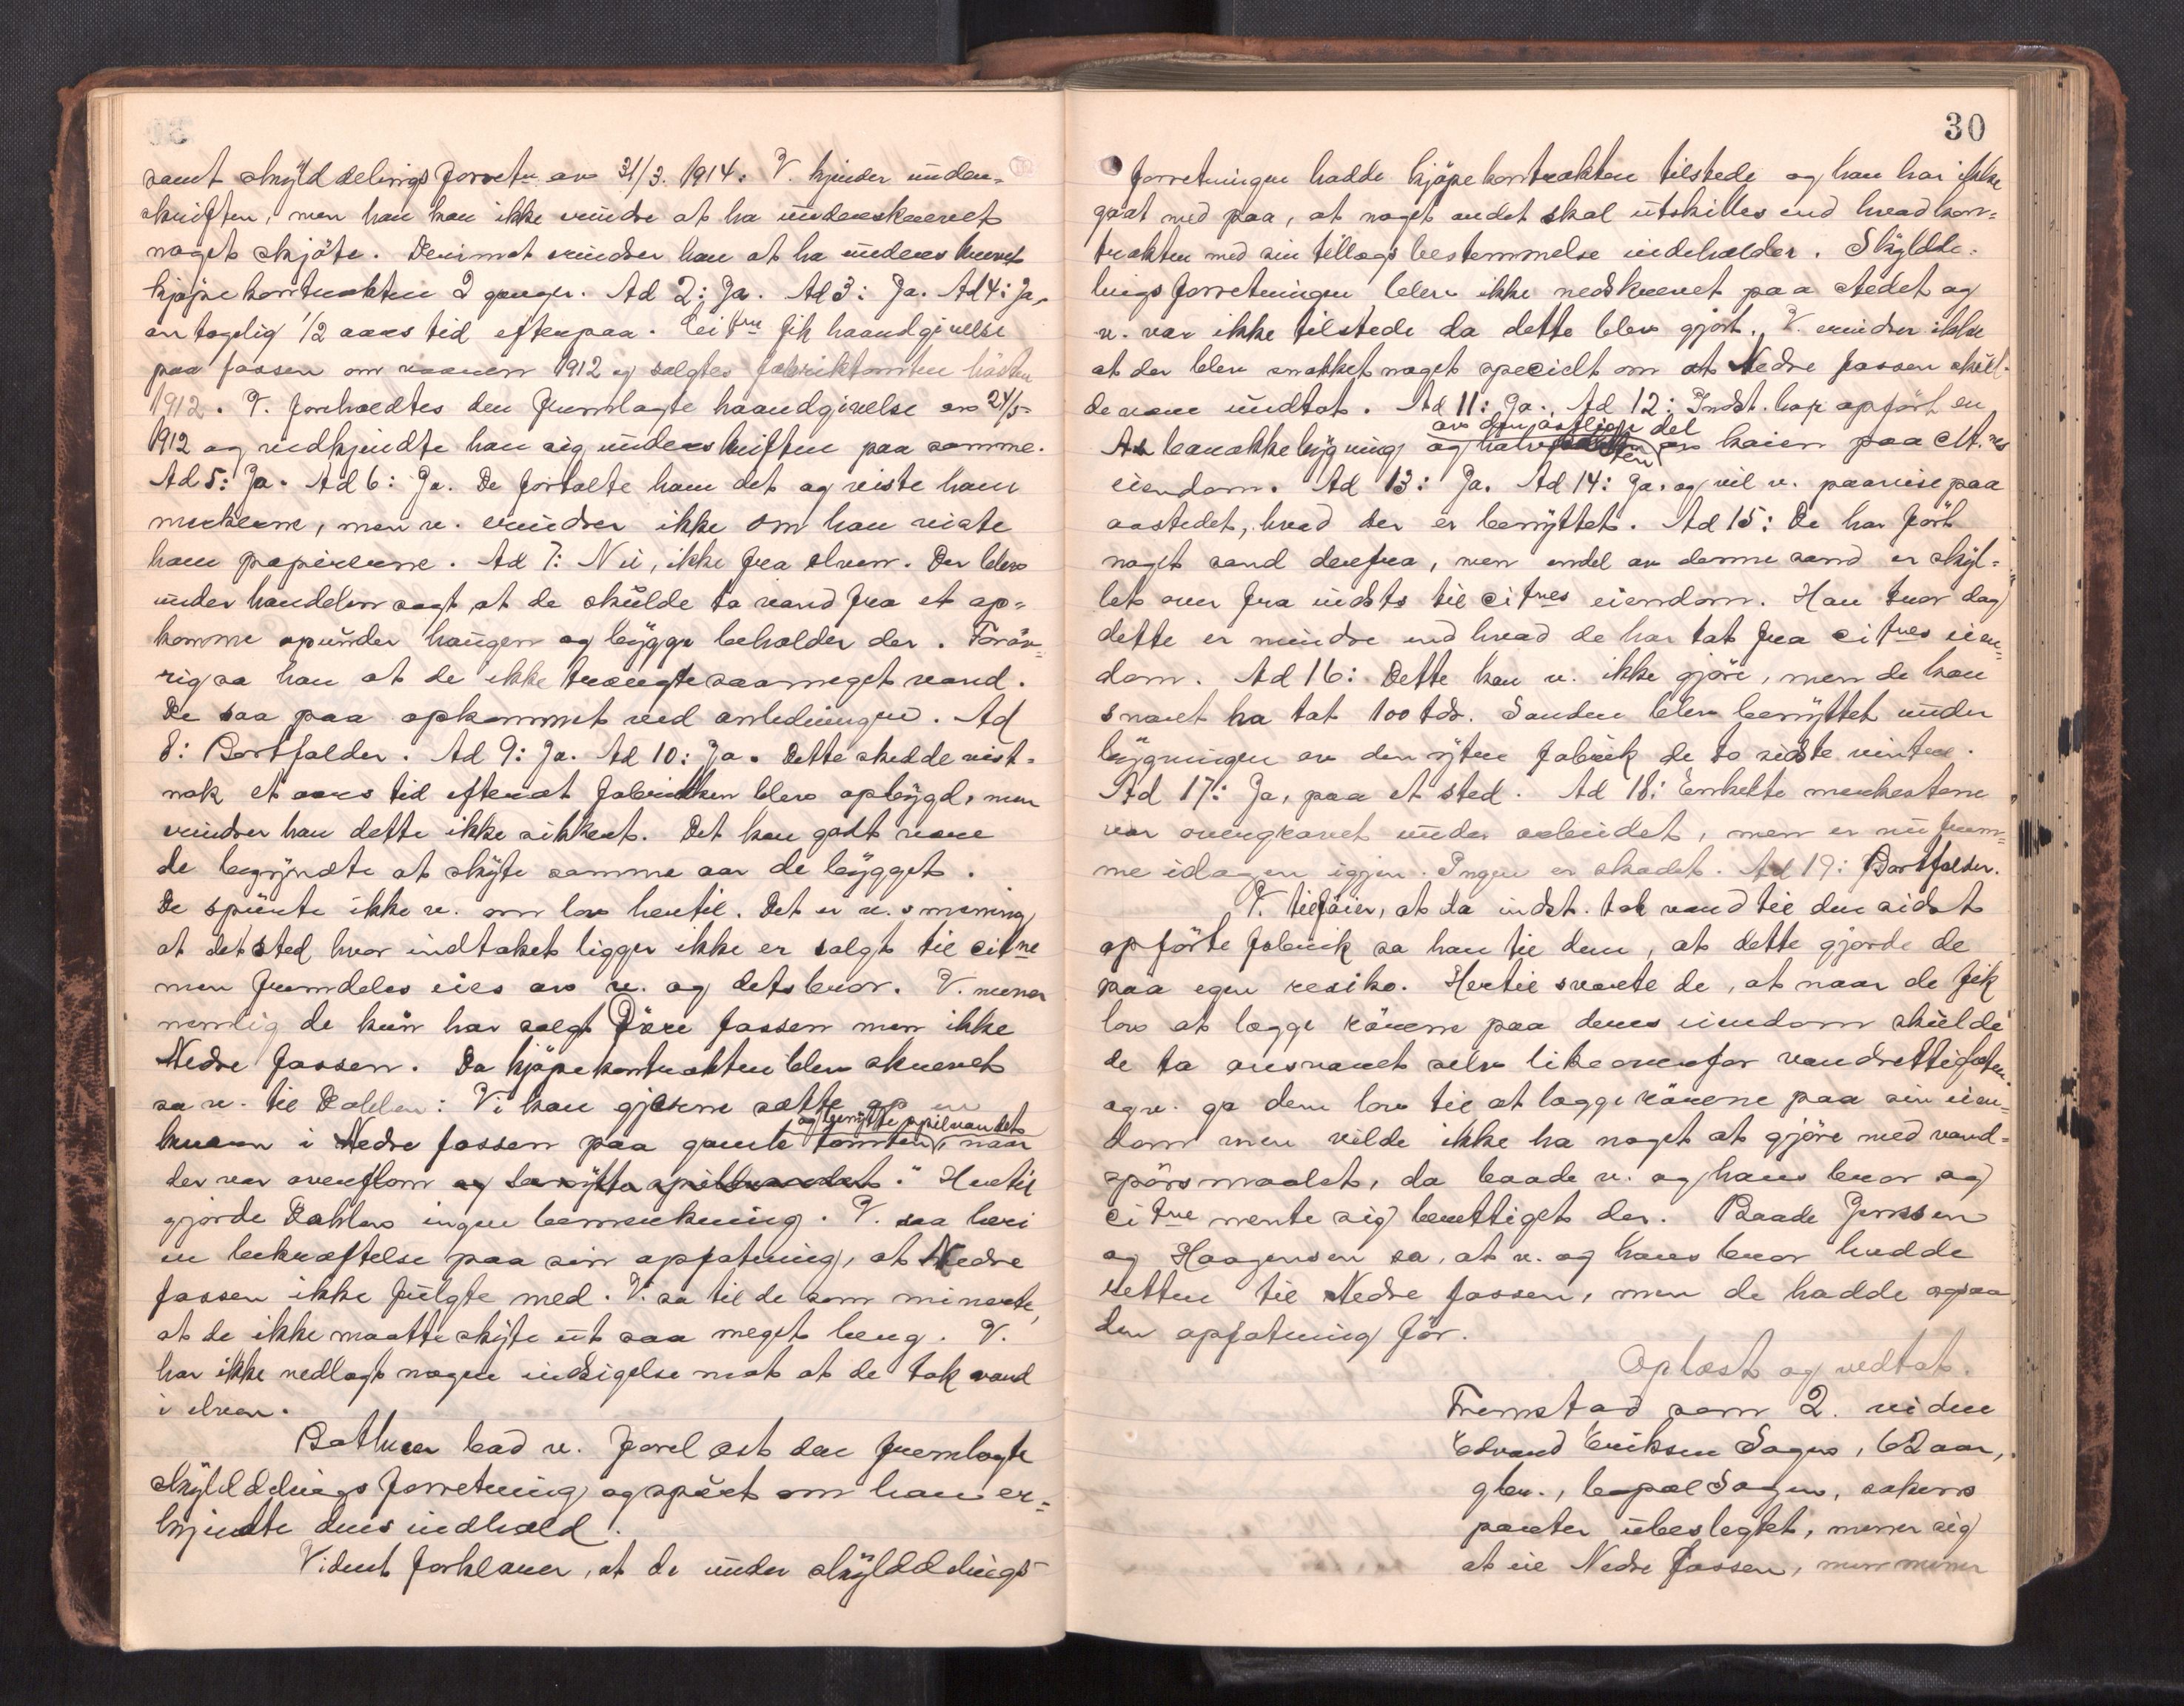 samt skylddelingsforretn av 31/3. 1914. V. kjender under-
skriften, men han kan ikke mindre at ha underskrevet
noget skjøte. Derimot mindrer han at ha underskrevet
kjøpekontrakten 2 ganger. Ad 2: Ja. Ad 3: Ja. Ad 4: Ja,
antagelig 1/2 aars tid efterpaa. Citne fik haandgivelse
paa fossen om vaaren 1912 og solgtes fabriktomten høsten
1912. V. foreholdtes den fremlagte haandgivelse av 24/5-
1912 og vedkjendte han sig underskriften paa samme.
Ad 5: Ja. Ad 6: Ja. De fortalte ham det og viste ham
merkerne, men v. mindrer ikke om han viste
ham papirerne. Ad 7: Nei, ikke fra elven. Der blev
under handelen sagt at de skulde ta vand fra et op-
komme opunder haugen og bygge beholder der. Forøv-
rig sa han at de ikke trængte saa meget vand.
De saa paa opkommet ved anledningen. Ad
8: Bortfalder. Ad 9: Ja. Ad 10: Ja. Dette skedde vist-
nok et aars tid efterat fabrikken blev opbygd, men
mindrer han dette ikke sikkert. Det kan godt være
de begyndte at skyte samme aar de bygget.
De spurte ikke v. om lov hertil. Det er v.s mening,
at det sted hvor indtaket ligger ikke er solgt til citne
men fremdeles eies av v. og dets bror. V. mener
nemlig de kun har solgt Øvre fossen men ikke
Nedre fossen. Da kjøpekontrakten blev skrevet
sa v. til Dahlen: Vi kan gjerne sætte op en
og benytte spilvandet
kvern i Nedre fossen paa gamle tomten, naar
der var overflom og benytte spilvandet." Hertil
gjorde Dahlen ingen bemerkning. V. saa heri
en bekræftelse paa sin opfatning, at Nedre
fossen ikke fulgte med. V. sa til de som minerte,
at de ikke maatte skyte ut saa meget berg. V.
har ikke nedlagt nogen indsigelse mot at de tok vand
i elven.
bad v. forelæst den fremlagte
skylddelingsforretning og spurt om han er-
kjendte dens indhold.
Vidnet forklarer, at de under skylddelings-
30
forretningen hadde kjøpekontrakten tilstede og han har ikke
gaat med paa, at noget andet skal utskilles end hvad kon-
trakten med sin tillægsbestemmelse indeholder. Skyldde-
lingsforretningen blev ikke nedskrevet paa stedet og
v. var ikke tilstede da dette blev gjort. V. mindrer ikke
at der blev snakket noget specielt om at Nedre fossen skul-
de være undtat. Ad 11: Ja. Ad 12: Indst. har opført en
av den østlige del
barakkebygning og halvparten av kaien paa
eiendom. Ad 13: Ja. Ad 14: Ja. og vil v. paavise paa
aastedet, hvad der er benyttet. Ad 15: De har ført
noget sand derfra, men endel av denne sand er skyl-
let over fra indsts til citnes eiendom. Han tror dog
dette er mindre end hvad de har tat fra citnes eien-
dom. Ad 16: Dette kan v. ikke gjøre, men de kan
snaret ha tat 100 tdr. Sanden blev benyttet under
bygningen av den ytre fabrik de to sidste vintre.
Ad 17: Ja, paa et sted. Ad 18: Enkelte merkestene
var overgravet under arbeidet, men er nu frem-
me idagen igjen. Ingen er skadet. Ad 19: Bortfalder.
V. tilføier, at da indst. tok vand til den sidst
opførte fabrik sa han til dem, at dette gjorde de
paa egen resiko. Hertil svarte de, at naar de fik
lov at lægge rørene paa deres eiendom skulde
de ta ansvaret selv likeoverfor vandrettigheten.
og v. ga dem lov til at lægge rørene paa sin eien-
dom men vilde ikke ha noget at gjøre med vand-
spørsmaalet, da baade v. og hans bror og
citne mente sig berettiget der. Baade Jenssen
og Haagensen sa, at v. og hans bror hadde
retten til Nedre fossen, men de hadde ogsaa
den opfatning før.
Oplæst og vedtat.
Fremstod som 2. vidne
Edvard Eriksen Sagen, 62 aar,
gbr., bopæl Sagen, sakens
parter ubeslegtet, mener sig
at eie Nedre Fossen, men mener